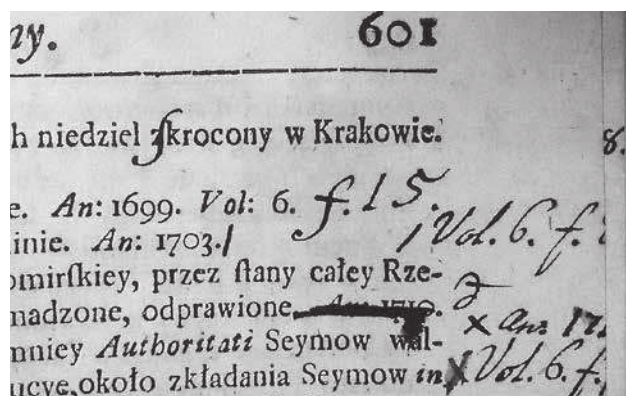 ny. 601
h niedziel skrocony w Krakowie. 8.
e. An: 1699. Vol: 6. f. 15.
inie. An: 1703./ / Vol. 6. f.
omirſkiey, przez ſtany całey Rze-
madzone, odprawione. An: 1710. x An:
mniey Authoritati Seymow wal-
ucye, około zkładania Seymow in x Vol. 6. f.